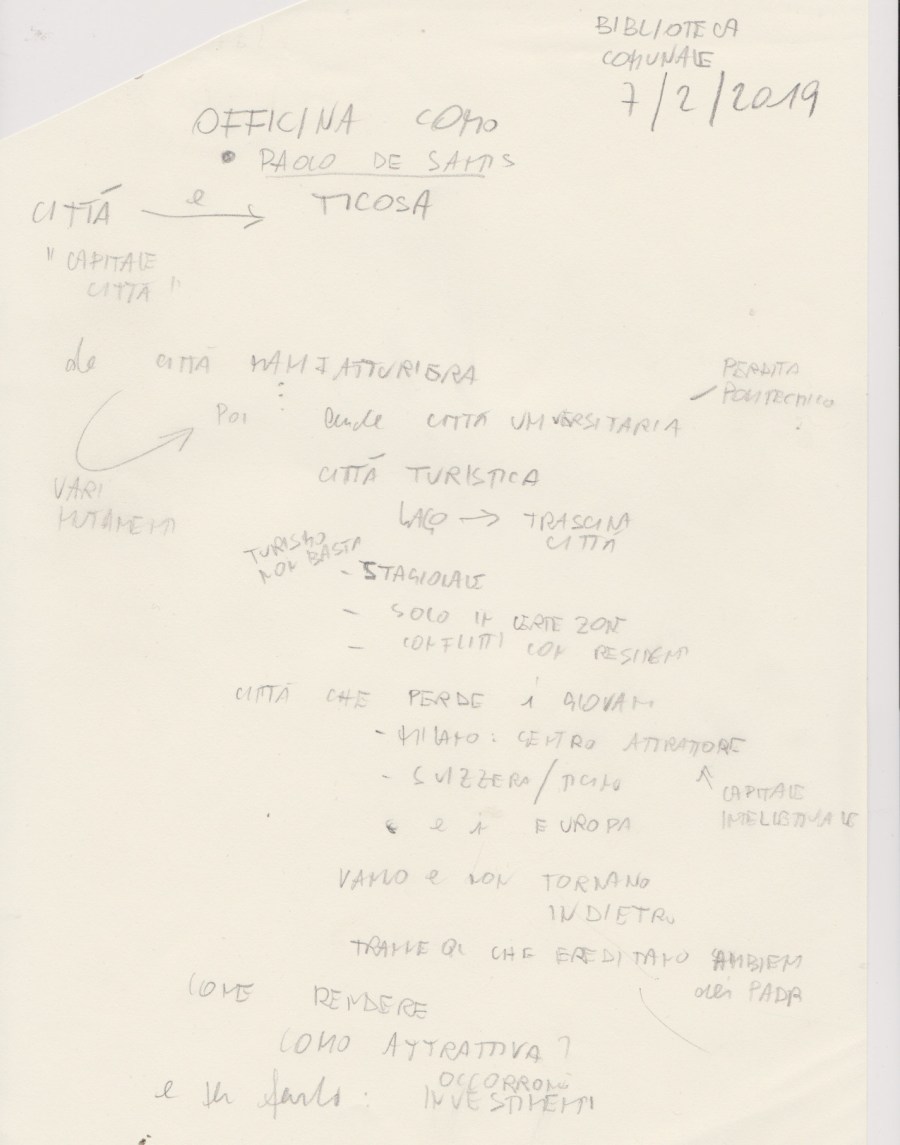 BIBLIOTECA
COMUNALE
7/2/2019
OFFICINA COMO
• PAOLO DE SANTIS
CITTÀ e → TICOSA
"CAPITALE
CITTÀ"
da CITTÀ MANIFATTURIERA
PERDITA
POLITECNICO
Poi anche CITTÀ UNIVERSITARIA
CITTÀ TURISTICA
VARI
MUTAMENTI
LAGO → TRASCINA
CITTÀ
TURISMO
NON BASTA
- STAGIONALE
- SOLO IN CERTE ZONE
- CONFLITTI CON RESIDENTI
CITTÀ CHE PERDE i GIOVANI
- MILANO: CENTRO ATTRATTORE
- SVIZZERA/TICINO
CAPITALE
INTELLETTUALE
e in EUROPA
VANNO e NON TORNANO
INDIETRO
TRANNE QLI CHE EREDITANO AMBIENTI
dei PADRI
COME RENDERE
COMO ATTRATTIVA?
e per farlo: OCCORRONO
INVESTIMENTI